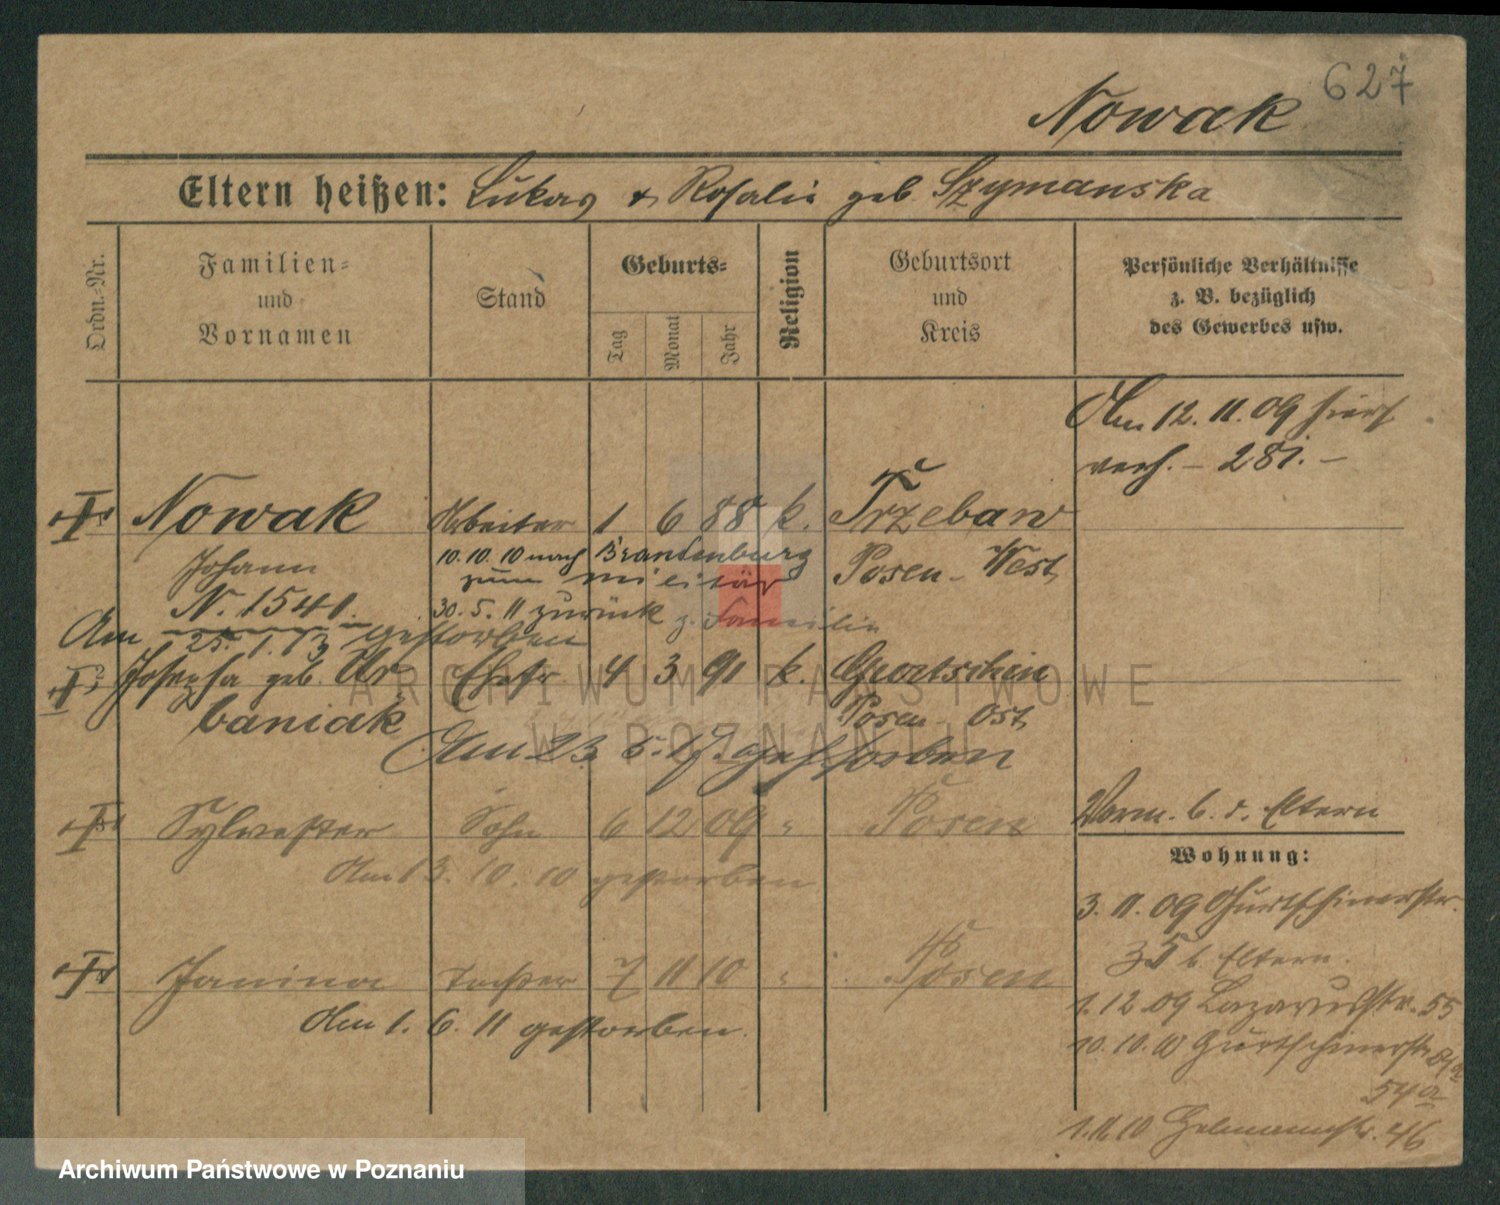 627
Nowak
Eltern heißen: Lukas & Rosalie geb. Szymanska
Ordn.-Nr.
Familien-
und
Vornamen
Stand
Geburts-
Tag
Monat
Jahr
Religion
Geburtsort
und
Kreis
Persönliche Verhältnisse
z. B. bezüglich
des Gewerbes usw.
Am 12. 11. 09 hier
verh. – 281. –
Nowak Arbeiter 1 6 88 k. Trzebaw
Johann 10. 10. 10 nach Brandenburg Posen-West
zum Militär
N. 1541. 30. 5. 11 zurück z. Familie
Am 25. 1. 13 gestorben
Josepha geb. Ur- Ehefr 4 3 91 k. Gurtschin
baniak Posen-Ost
Am 23. 5. 17. gestorben
Sylvester Sohn 6 12 09 " Posen
Am 13. 10. 10 gestorben
Vorm. b. d. Eltern
Wohnung:
3. 11. 09 Gurtschinerstr.
35 b. Eltern.
Janina Tochter 7 11 10 " Posen
Am 1. 6. 11 gestorben.
1. 12. 09 Lazarusstr. 55
10. 10. 10 Gurtschinerstr
54a
1. 11. 10 46
ARCHIWUM PAŃSTWOWE
W POZNANIU
Archiwum Państwowe w Poznaniu